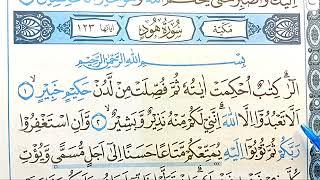 مكية
سورة هود
آياتها ١٢٣
بسم الله الرحمن الرحيم
الٓرۚ كِتَٰبٌ أُحْكِمَتْ ءَايَٰتُهُۥ ثُمَّ فُصِّلَتْ مِن لَّدُنْ حَكِيمٍ خَبِيرٍ ١
أَلَّا تَعْبُدُوٓا۟ إِلَّا ٱللَّهَۚ إِنَّنِى لَكُم مِّنْهُ نَذِيرٌ وَبَشِيرٌ ٢ وَأَنِ ٱسْتَغْفِرُوا۟
رَبَّكُمْ ثُمَّ تُوبُوٓا۟ إِلَيْهِ يُمَتِّعْكُم مَّتَٰعًا حَسَنًا إِلَىٰٓ أَجَلٍ مُّسَمًّى وَيُؤْتِ